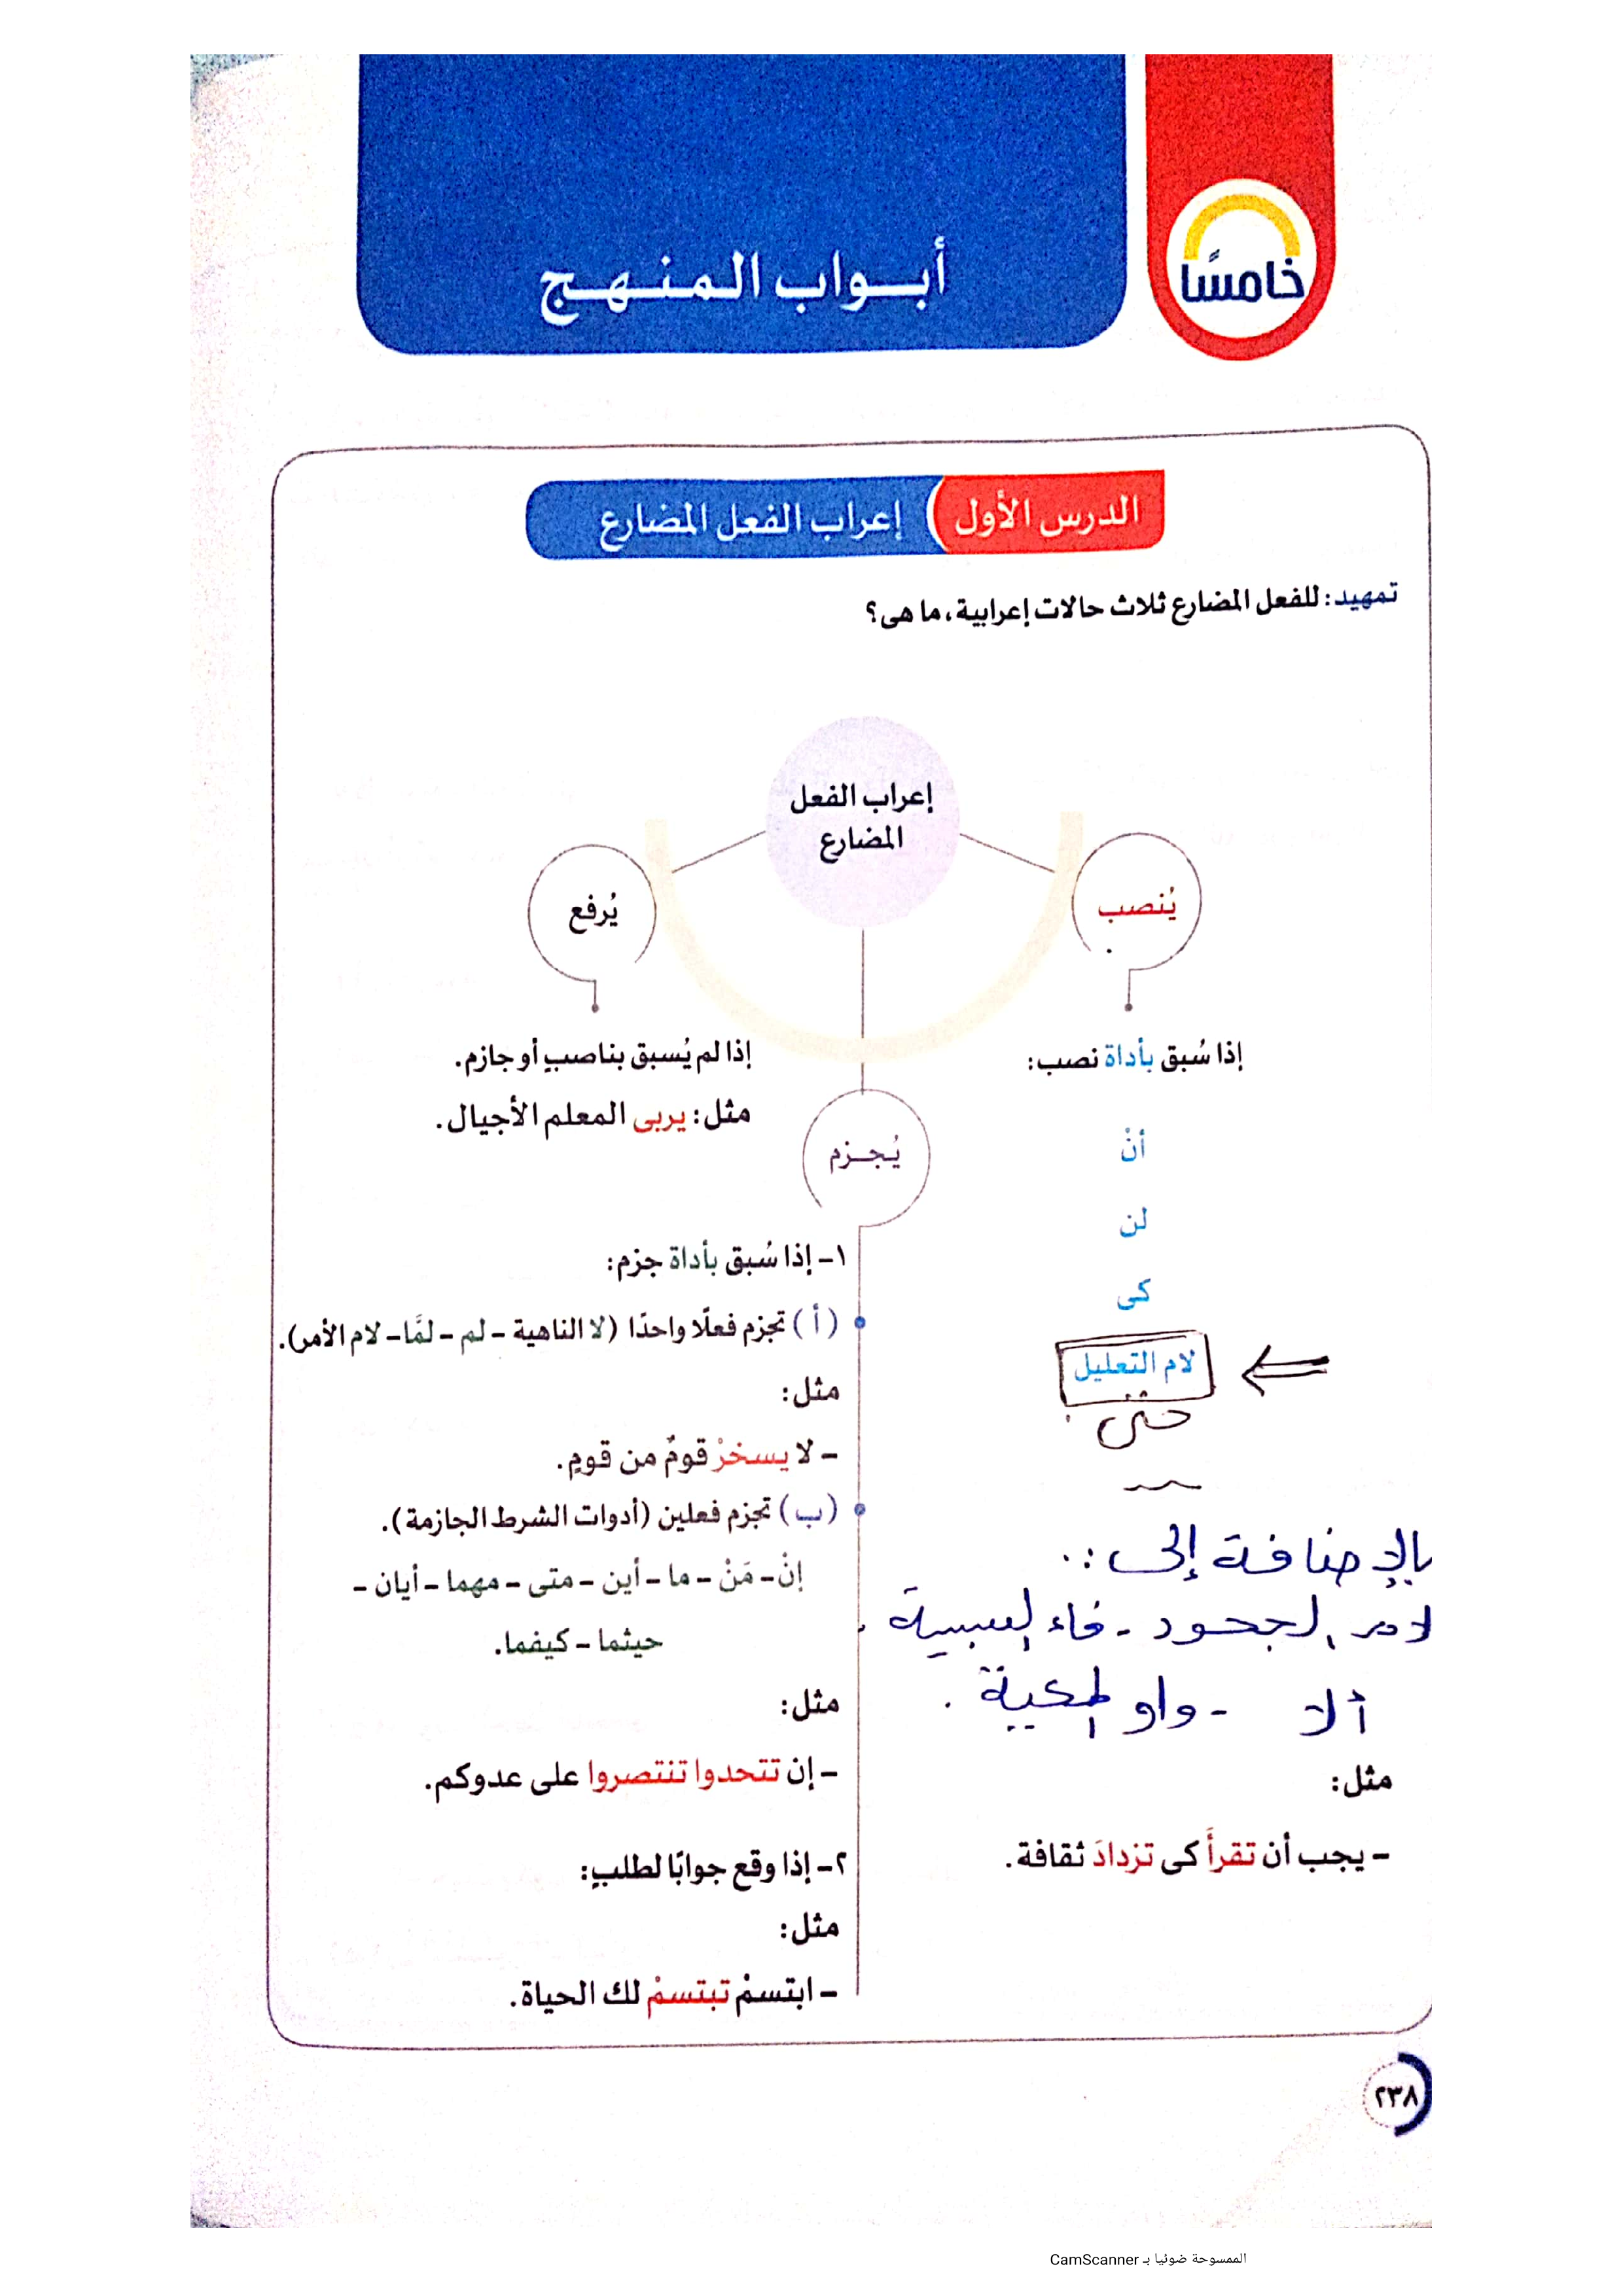 خامسًا
أبواب المنهج
الدرس الأول
إعراب الفعل المضارع
تمهيد: للفعل المضارع ثلاث حالات إعرابية، ما هى؟
إعراب الفعل
المضارع
يُنصب
إذا سُبق بأداة نصب:
أنْ
لن
كى
لام التعليل
حتى
بالإضافة إلى:
لام الجحود - فاء السببية.
ألا - واو المعية.
مثل:
- يجب أن تقرأَ كى تزدادَ ثقافة.
يُرفع
إذا لم يُسبق بناصبٍ أو جازم.
مثل: يربى المعلم الأجيال.
يُجزم
١- إذا سُبق بأداة جزم:
(أ) تجزم فعلًا واحدًا (لا الناهية - لم - لمَّا - لام الأمر).
مثل:
- لا يسخرْ قومٌ من قومٍ.
(ب) تجزم فعلين (أدوات الشرط الجازمة).
إنْ - مَنْ - ما - أين - متى - مهما - أيان -
حيثما - كيفما.
مثل:
- إن تتحدوا تنتصروا على عدوكم.
٢- إذا وقع جوابًا لطلبٍ:
مثل:
- ابتسمْ تبتسمْ لك الحياة.
٢٣٨
الممسوحة ضوئيا بـ CamScanner